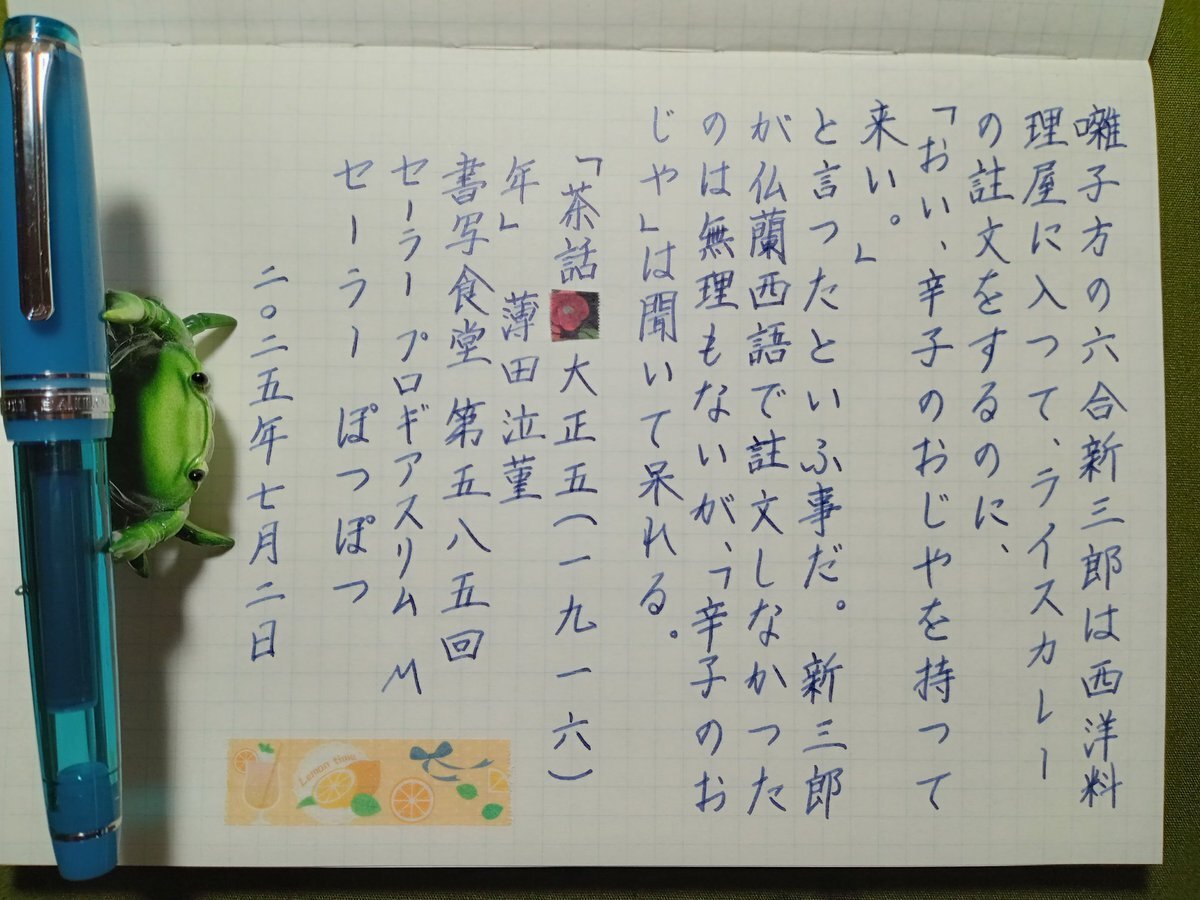 囃子方の六合新三郎は西洋料
理屋に入つて、ライスカレー
の註文をするのに、
「おい、辛子のおじやを持つて
来い。」
と言つたといふ事だ。新三郎
が仏蘭西語で註文しなかつた
のは無理もないが、「辛子のお
じや」は聞いて呆れる。
「茶話 大正五(一九一六)
年」 薄田泣菫
書写食堂 第五八五回
セーラー プロギアスリム M
セーラー ぽつぽつ
二〇二五年七月二日
Lemon time